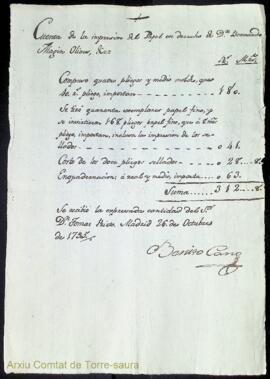 Cuenta de la impresion del Papel en derecho de Dn. Leonardo
Magin Oliver, &ca
Rs. Mrs.
Compuso quatro pliegos y medio molde, que
40 rs. pliego, importan 180.
Se tiró quarenta exemplares papel fino, y
se invirtieron 168 pliegos papel fino, que á
pliego, importan, inclusa la impresion de los se-
llados 041.
Corte de los doce pliegos sellados 028
Enquadernacion á real y medio, importa 063.
Suma 312
Se recibió la expresada cantidad del Sr.
Dn. Tomas Madrid 26 de Octubre
de
Benito Cano
Arxiu Comtat de Torre-saura